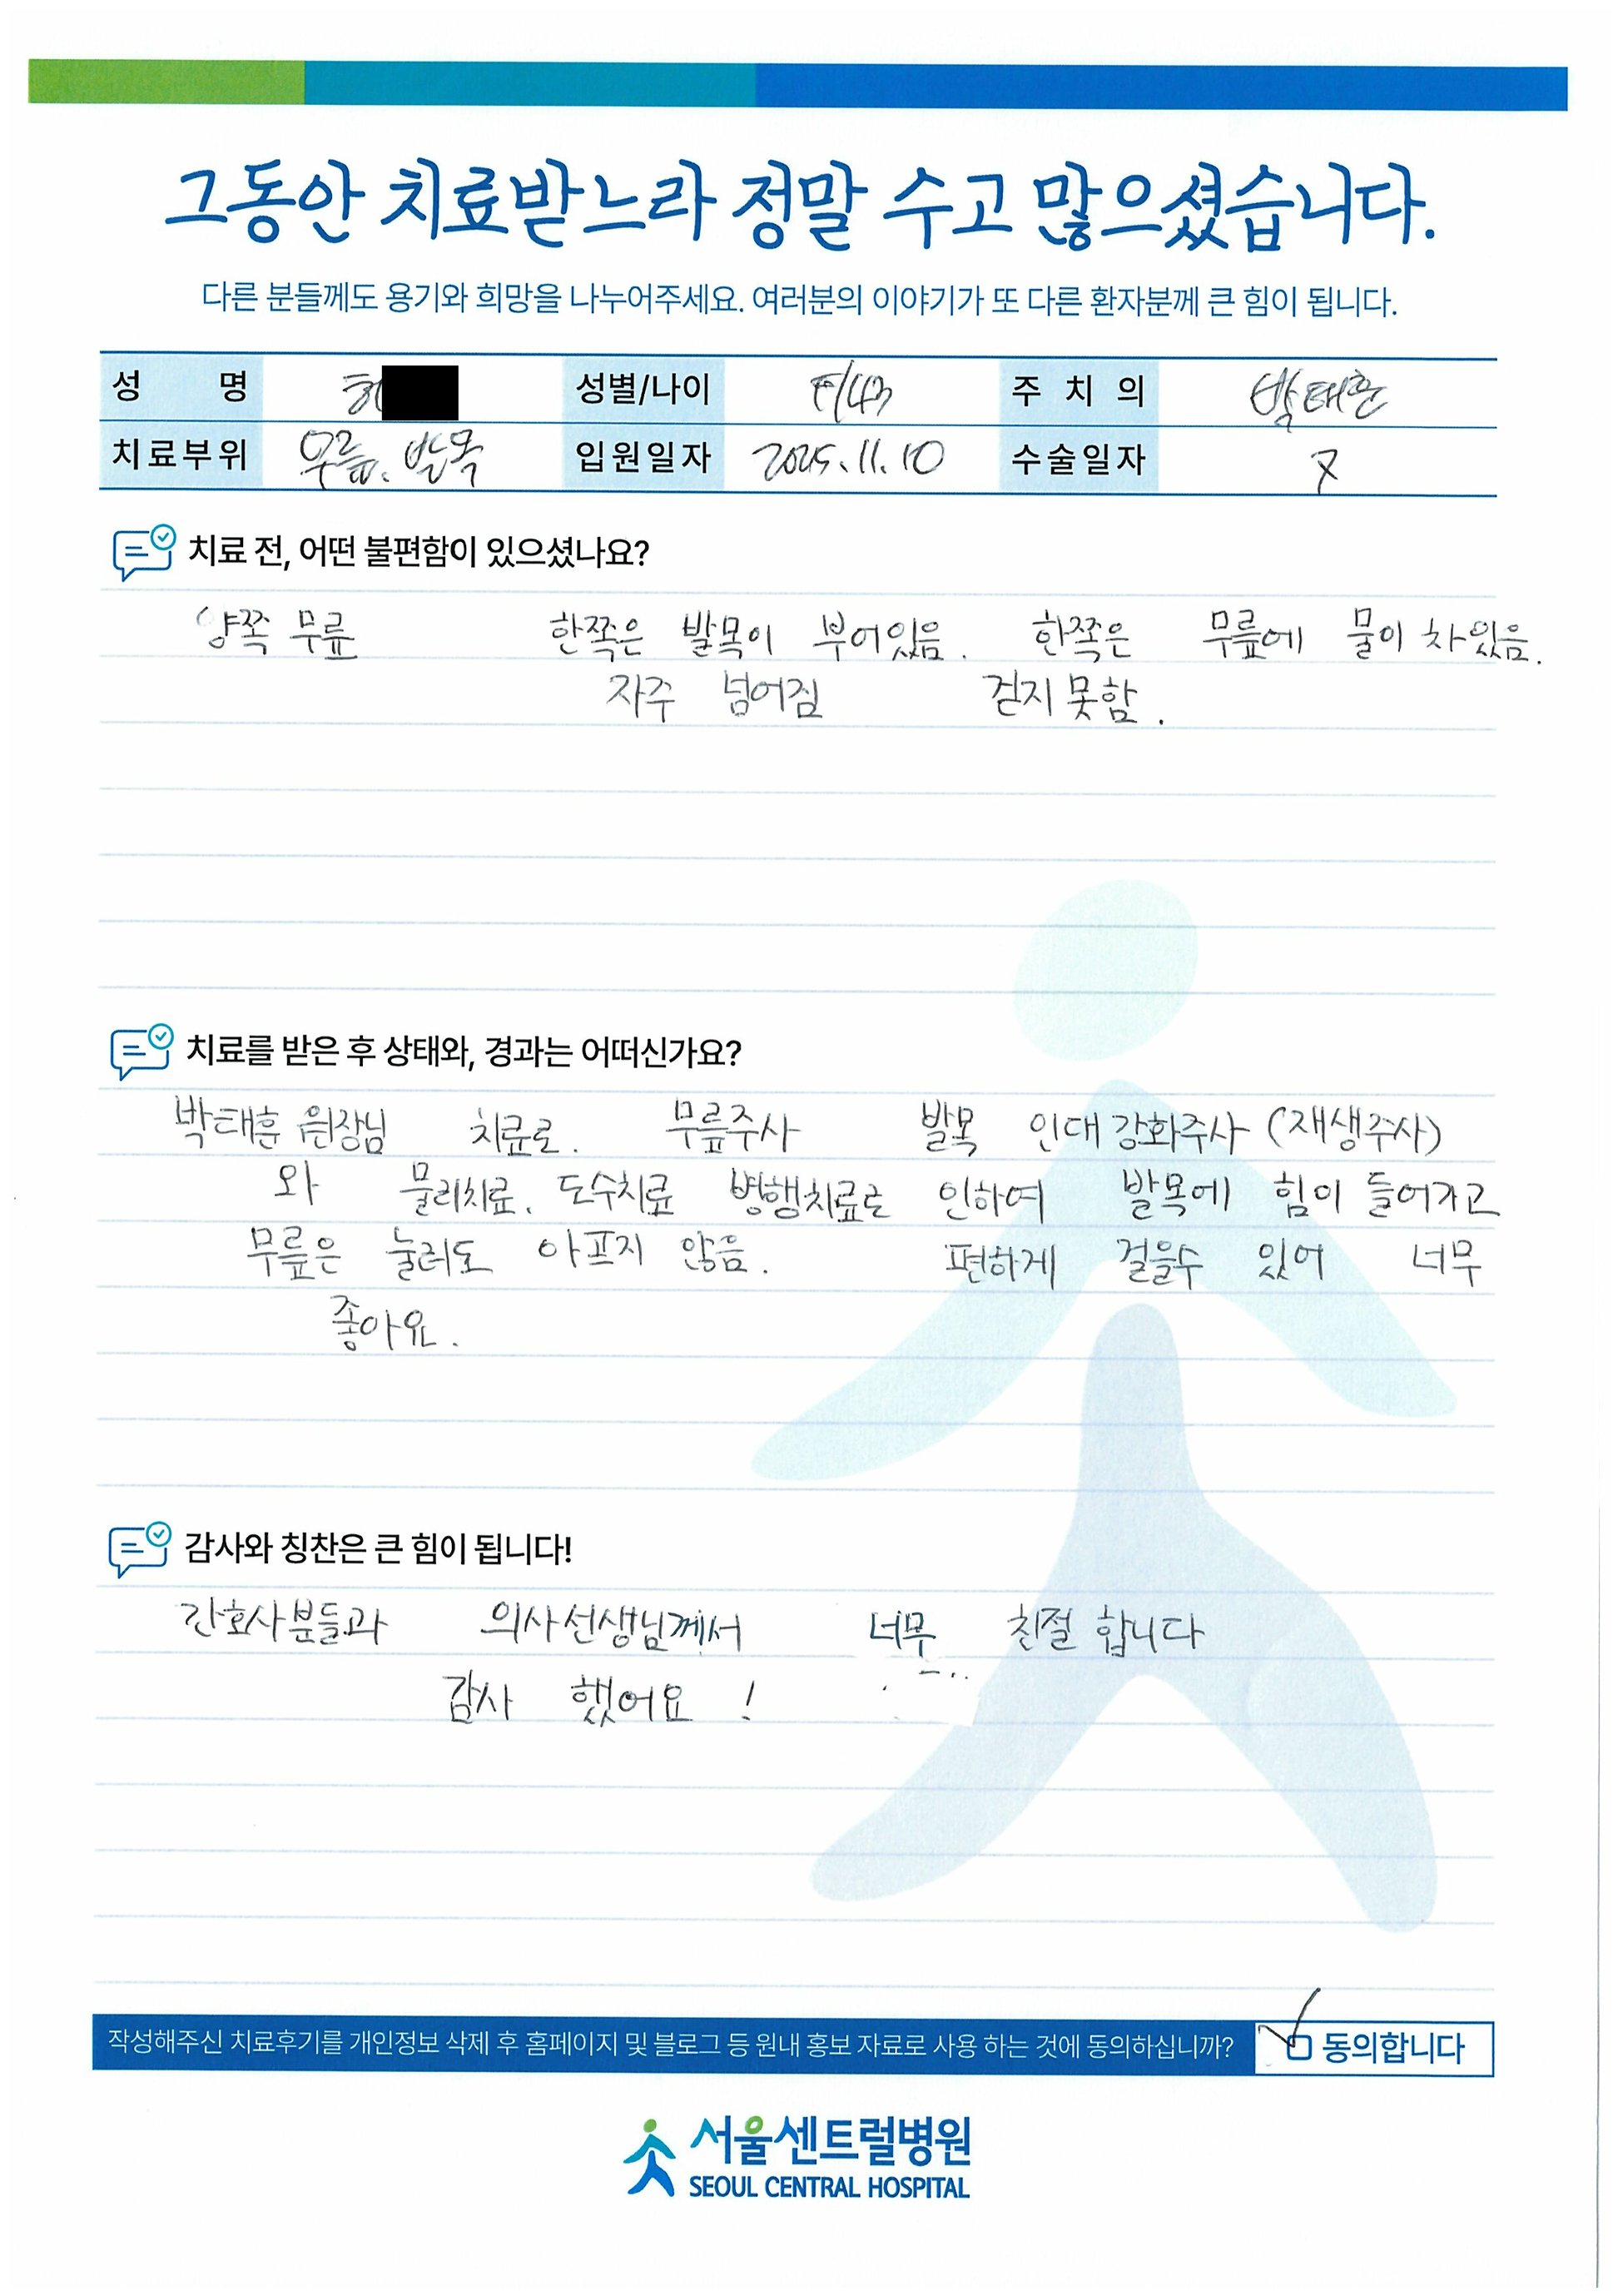 그동안 치료받느라 정말 수고 많으셨습니다.
다른 분들께도 용기와 희망을 나누어주세요. 여러분의 이야기가 또 다른 환자분께 큰 힘이 됩니다.
성 명 허 성별/나이 F/43 주 치 의 박태훈
치료부위 무릎. 발목 입원일자 2025. 11. 10 수술일자 X
치료 전, 어떤 불편함이 있으셨나요?
양쪽 무릎 한쪽은 발목이 부어있음. 한쪽은 무릎에 물이 차있음.
자주 넘어짐 걷지 못함.
치료를 받은 후 상태와, 경과는 어떠신가요?
박태훈 원장님 치료로. 무릎주사 발목 인대강화주사 (재생주사)
와 물리치료. 도수치료 병행치료로 인하여 발목에 힘이 들어가고
무릎은 눌러도 아프지 않음. 편하게 걸을수 있어 너무
좋아요.
감사와 칭찬은 큰 힘이 됩니다!
간호사분들과 의사선생님께서 너무 친절 합니다
감사 했어요 !
작성해주신 치료후기를 개인정보 삭제 후 홈페이지 및 블로그 등 원내 홍보 자료로 사용 하는 것에 동의하십니까? 동의합니다
서울센트럴병원
SEOUL CENTRAL HOSPITAL